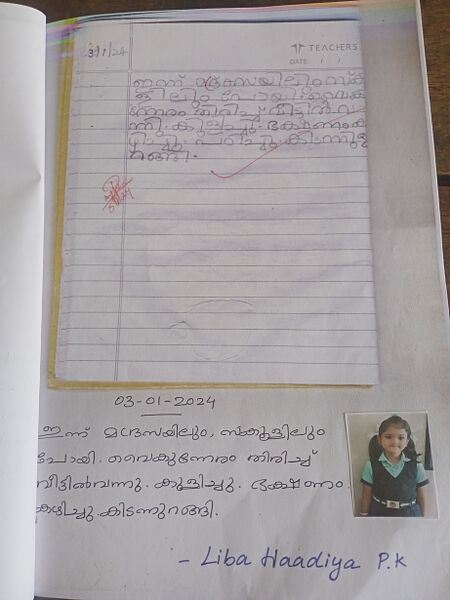 3/1/24
TEACHERS
DATE: / /
ഇന്ന് മദ്രസയിലും സ്ക
ളിലും പോയി വൈക
ന്നേരം തിരിച്ച് വീട്ടിൽ വ
ന്നു. കുളിച്ചു. ഭക്ഷണം ക
ഴിച്ചു. പഠിച്ചു. കിടന്നു
റങ്ങി.
03-01-2024
ഇന്ന് മദ്രസയിലും, സ്കൂളിലും
പോയി. വൈകുന്നേരം തിരിച്ച്
വീട്ടിൽവന്നു. കുളിച്ചു. ഭക്ഷണം
കഴിച്ചു കിടന്നുറങ്ങി.
- Liba Haadiya P.K